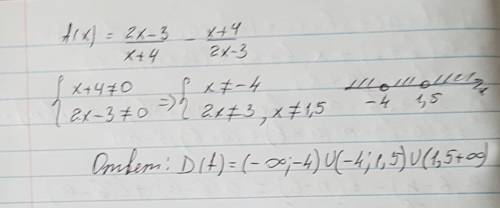 f(x) = (2x-3)/(x+4) - (x+4)/(2x-3)
{ x+4≠0 => { x≠-4
{ 2x-3≠0 { 2x≠3, x≠1,5
-4 1,5 x
Ответ: D(f)=(-∞;-4)∪(-4;1,5)∪(1,5+∞)